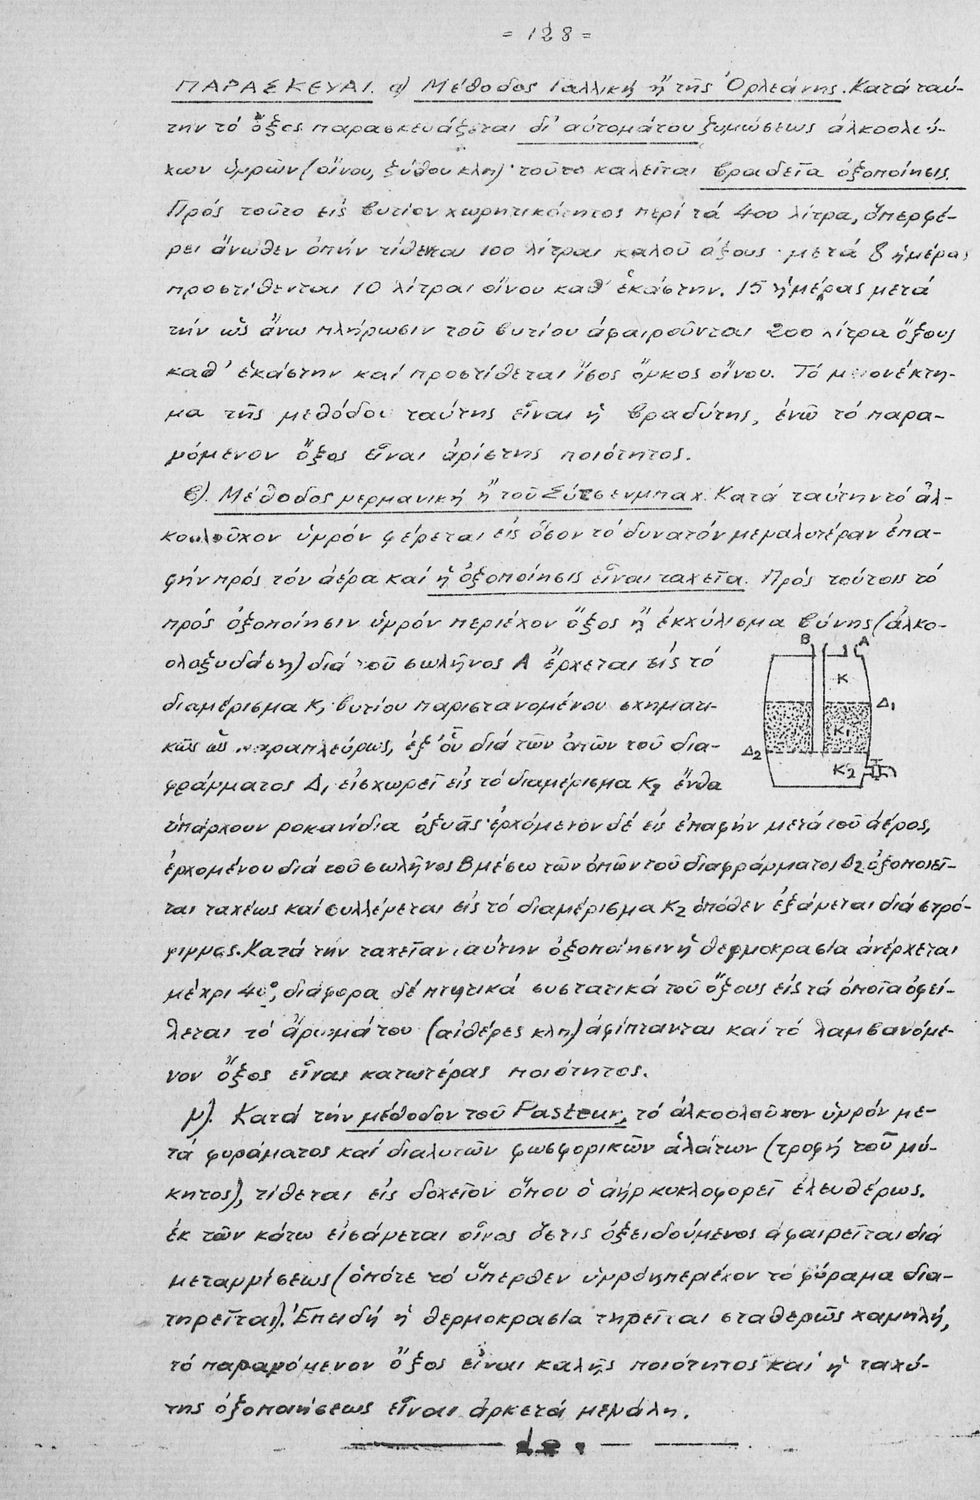 = 128 =
ΠΑΡΑΣΚΕΥΑΙ. α) Μέθοδος Γαλλική ἤ τῆς Ὀρλεάνης. Κατά ταύ-
την τό ὄξος παρασκευάζεται δι' αὐτομάτου ζυμώσεως ἀλκοολού-
χων ὑγρῶν (οἴνου, ζύθου κλπ)· τοῦτο καλεῖται βραδεῖα ὀξοποίησις.
Πρός τοῦτο εἰς βυτίον χωρητικότητος περί τά 400 λίτρα, ὅπερ φέ-
ρει ἄνωθεν ὀπήν τίθενται 100 λίτραι καλοῦ ὄξους· μετά 8 ἡμέρας
προστίθενται 10 λίτραι οἴνου καθ' ἑκάστην. 15 ἡμέρας μετά
τήν ὡς ἄνω πλήρωσιν τοῦ βυτίου ἀφαιροῦνται 200 λίτρα ὄξους
καθ' ἑκάστην καί προστίθεται ἴσος ὄγκος οἴνου. Τό μειονέκτη-
μα τῆς μεθόδου ταύτης εἶναι ἡ βραδύτης, ἐνῶ τό παρα-
γόμενον ὄξος εἶναι ἀρίστης ποιότητος.
β). Μέθοδος γερμανική ἤ τοῦ Σύτσενμπαχ. Κατά ταύτην τό ἀλ-
κοολοῦχον ὑγρόν φέρεται εἰς ὅσον τό δυνατόν μεγαλυτέραν ἐπα-
φήν πρός τόν ἀέρα καί ἡ ὀξοποίησις εἶναι ταχεῖα. Πρός τοῦτοις τό
πρός ὀξοποίησιν ὑγρόν περιέχον ὄξος ἤ ἐκχύλισμα βύνης (ἀλκο-
ολοξυδάση) διά τοῦ σωλῆνος Α ἔρχεται εἰς τό
διαμέρισμα Κ, βυτίου παριστανομένου σχηματι-
κῶς ὡς παραπλεύρως, ἐξ' οὗ διά τῶν ὀπῶν τοῦ δια-
φράγματος Δ₁ εἰσχωρεῖ εἰς τό διαμέρισμα Κ₁ ἔνθα
ὑπάρχουν ροκανίδια ὀξυᾶς· ἐρχόμενον δέ εἰς ἐπαφήν μετά τοῦ ἀέρος,
ἐρχομένου διά τοῦ σωλῆνος Β μέσω τῶν ὀπῶν τοῦ διαφράγματος Δ2 ὀξοποιεῖ-
ται ταχέως καί συλλέγεται εἰς τό διαμέρισμα Κ2 ὁπόθεν ἐξάγεται διά στρό-
φιγγος. Κατά τήν ταχεῖαν αὐτήν ὀξοποίησιν ἡ θερμοκρασία ἀνέρχεται
μέχρι 40°, διάφορα δέ πτητικά συστατικά τοῦ ὄξους εἰς τά ὁποῖα ὀφεί-
λεται τό ἄρωμά του (αἰθέρες κλπ) ἀφίπτανται καί τό λαμβανόμε-
νον ὄξος εἶναι κατωτέρας ποιότητος.
γ). Κατά τήν μέθοδον τοῦ Pasteur, τό ἀλκοολοῦχον ὑγρόν με-
τά φυράματος καί διαλυτῶν φωσφορικῶν ἁλάτων (τροφή τοῦ μύ-
κητος), τίθεται εἰς δοχεῖον ὅπου ὁ ἀήρ κυκλοφορεῖ ἐλευθέρως.
ἐκ τῶν κάτω εἰσάγεται οἶνος ὅστις ὀξειδούμενος ἀφαιρεῖται διά
μεταγγίσεως (ὁπότε τό ὕπερθεν ὑγρόν περιέχον τό φύραμα δια-
τηρεῖται). Ἐπειδή ἡ θερμοκρασία τηρεῖται σταθερῶς χαμηλή,
τό παραγόμενον ὄξος εἶναι καλῆς ποιότητος καί ἡ ταχύ-
της ὀξοποιήσεως εἶναι ἀρκετά μεγάλη.
Β Α
Κ
Δ₁
Κ₁
Δ2
Κ2